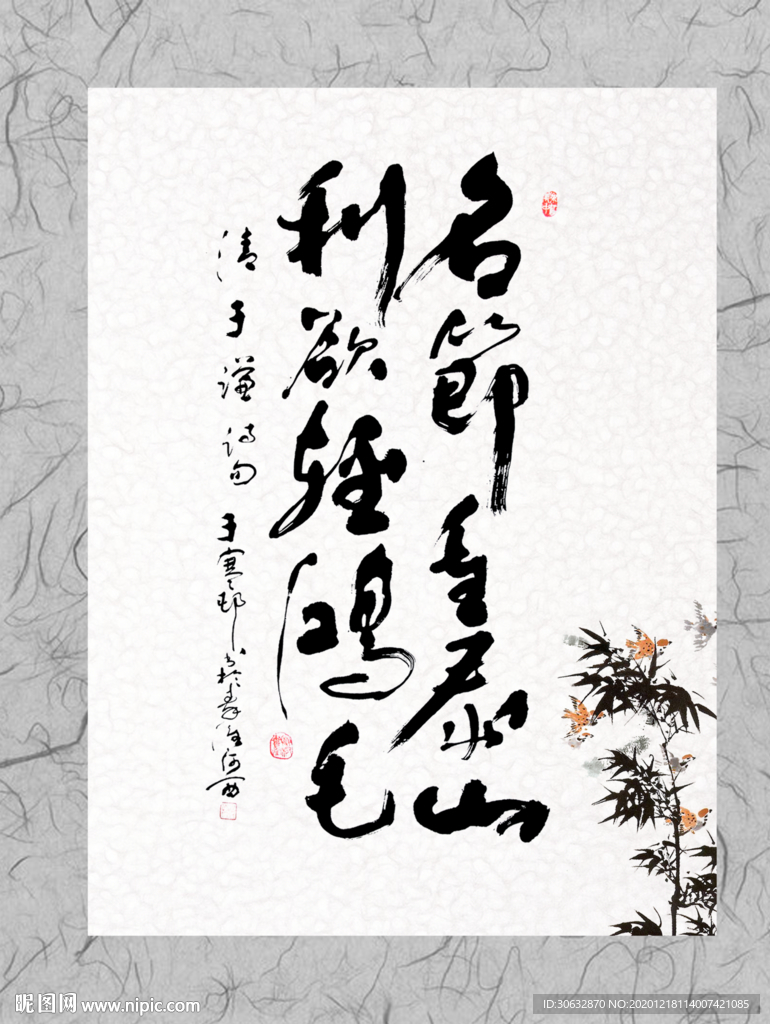 名節重泰山
利欲輕鴻毛
清于謙诗句
于寒邨书於寿淮河西
昵图网 www.nipic.com
ID:30632870 NO:20201218114007421085